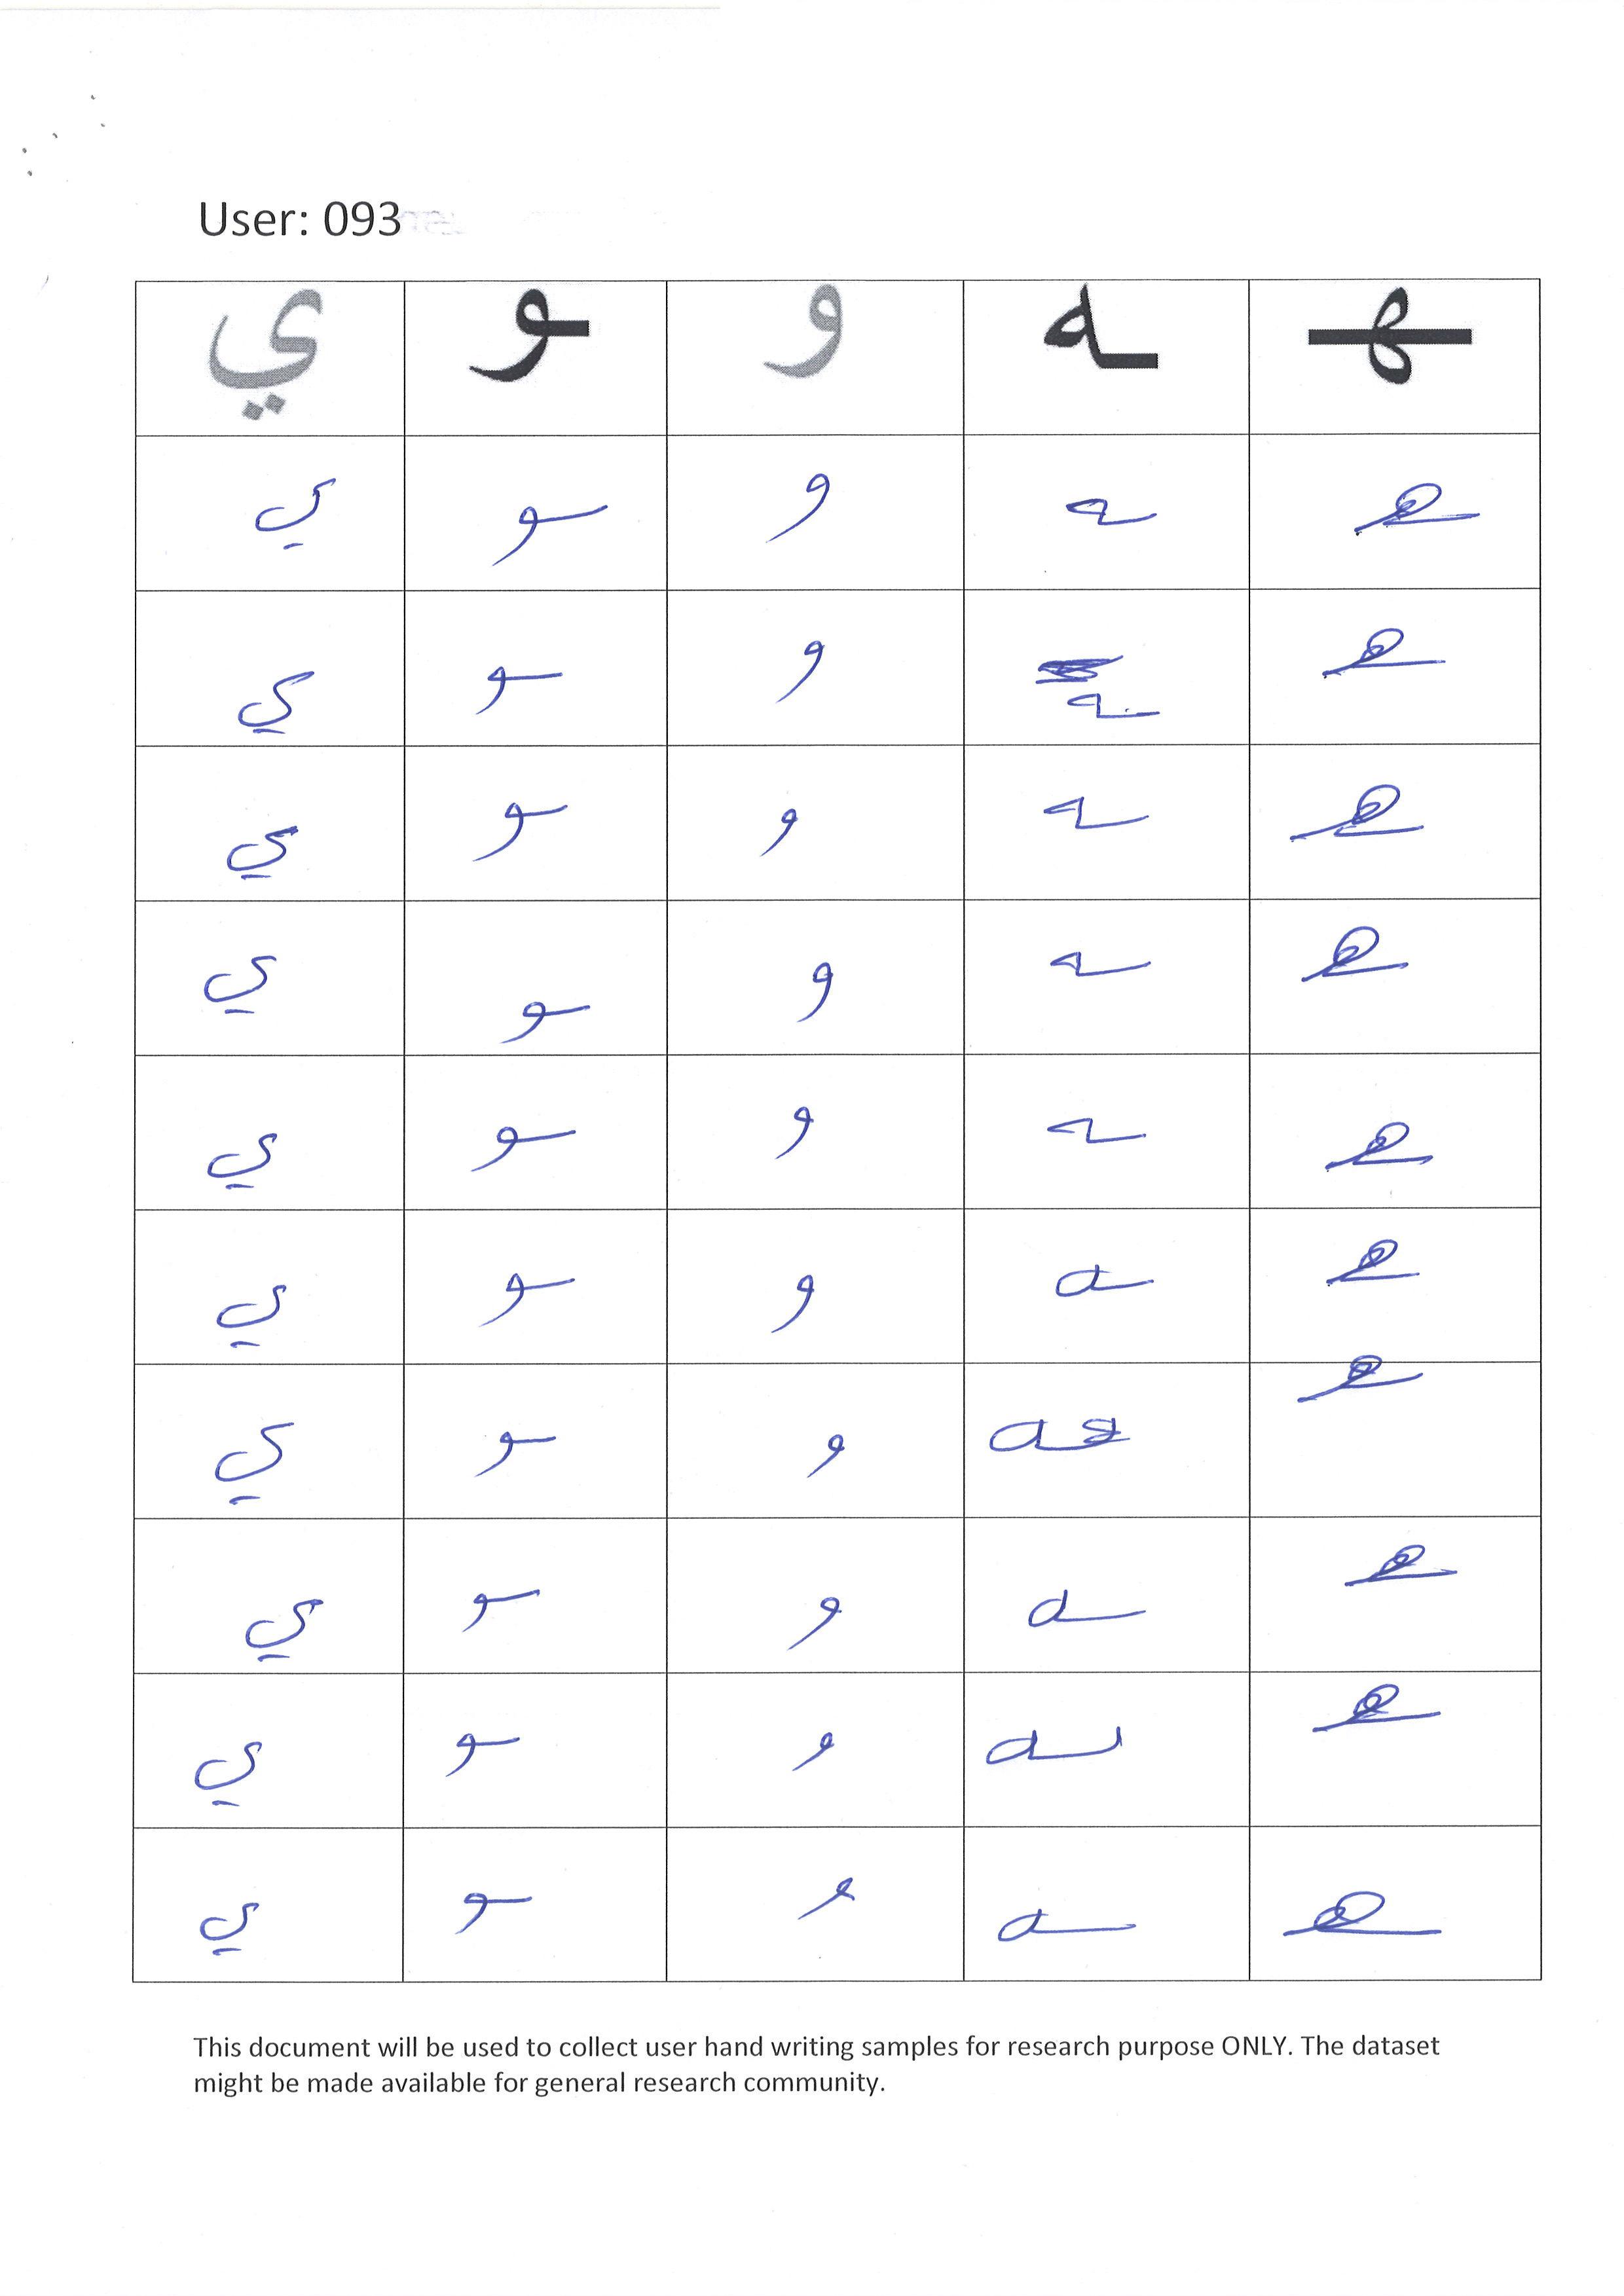 User: 093
ـهـ ـه و ـو ي
ـهـ ـه و ـو ي
ـهـ ـه و ـو ي
ـهـ ـه و ـو ي
ـهـ ـه و ـو ي
ـهـ ـه و ـو ي
ـهـ ـه و ـو ي
ـهـ ـه و ـو ي
ـهـ ـه و ـو ي
ـهـ ـه و ـو ي
ـهـ ـه و ـو ي
This document will be used to collect user hand writing samples for research purpose ONLY. The dataset
might be made available for general research community.